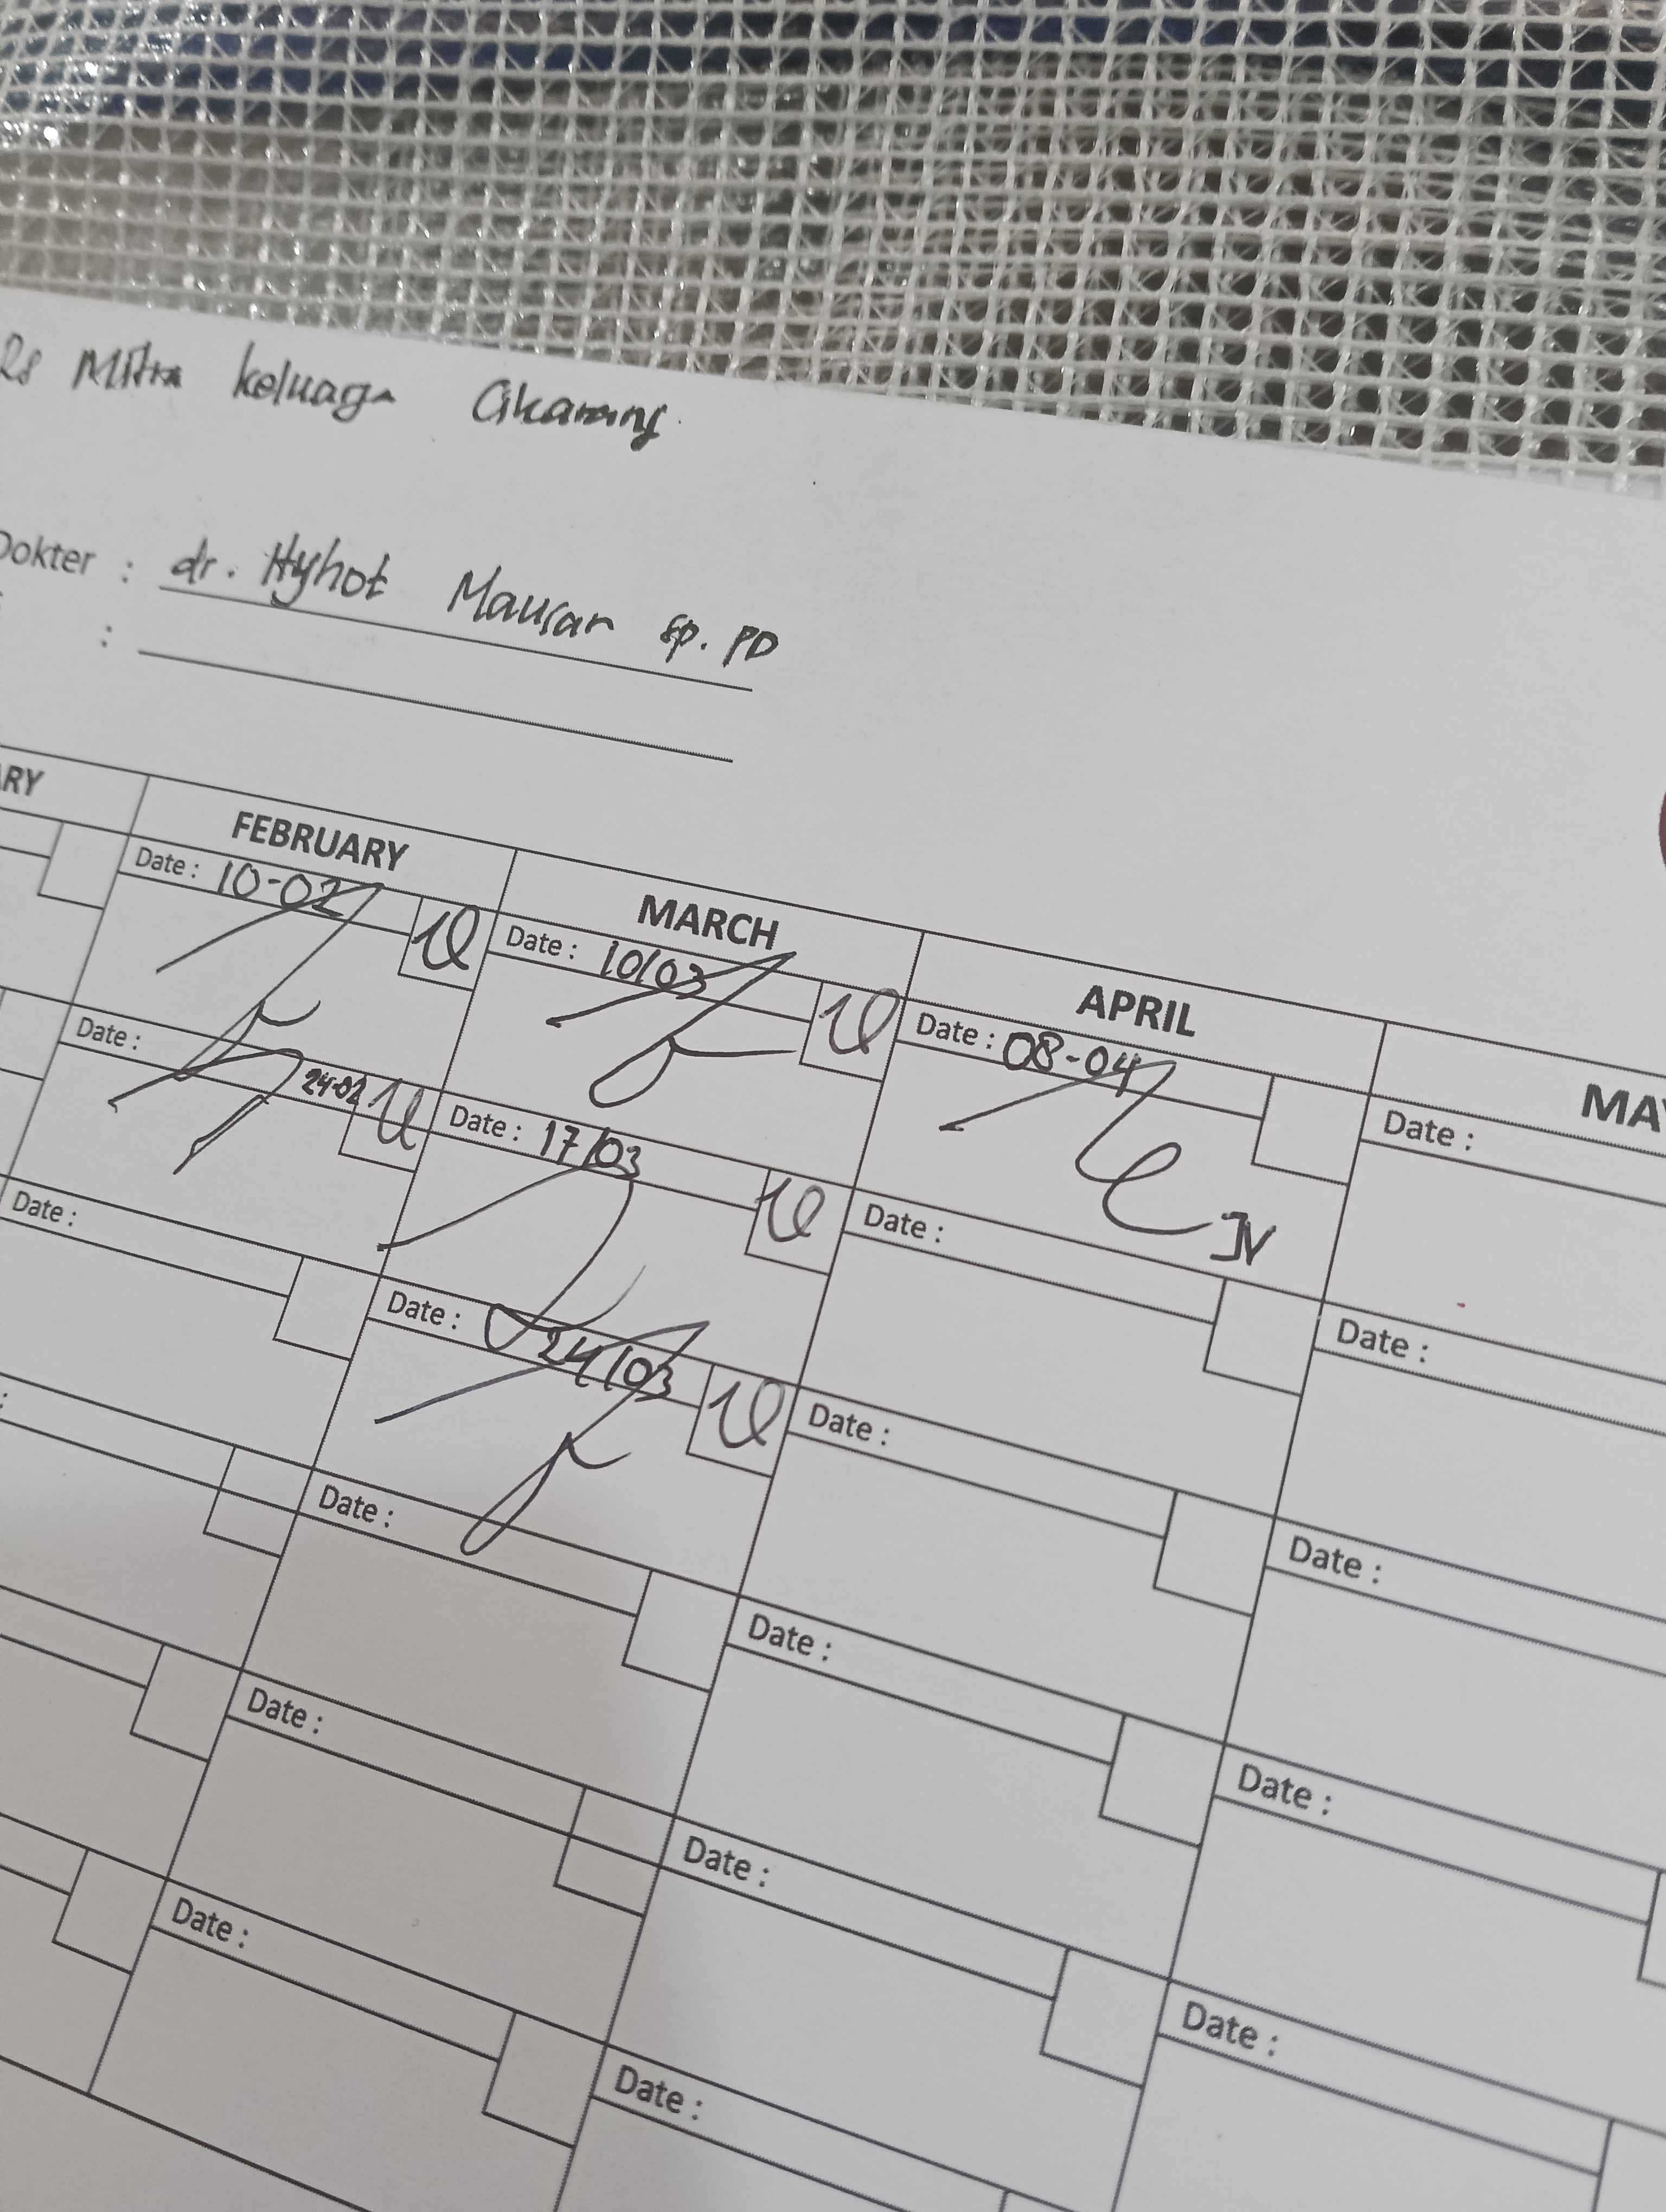 RS Mitra keluaga Cikarang
Dokter : dr. Hyhot Mausar sp. PD
:
FEBRUARY MARCH APRIL
Date : 10-02
Date : 10/03
Date : 08-04
Date :
Date : 24-02
Date : 17/03
Date :
Date :
Date :
Date : 24/03
Date :
Date :
Date :
Date :
Date :
Date :
Date :
Date :
Date :
Date :
IV